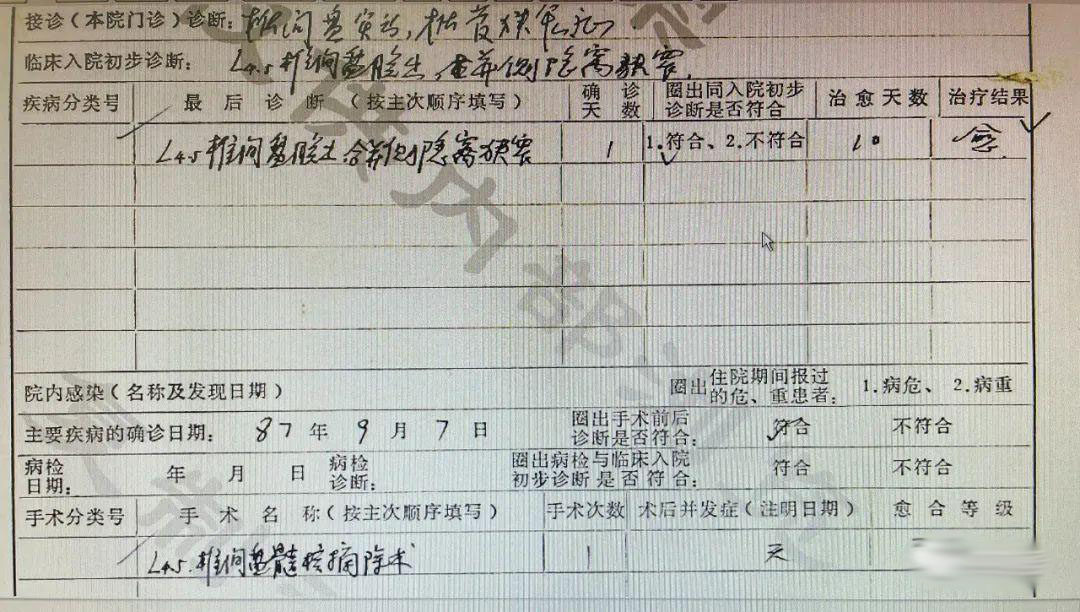 接诊(本院门诊)诊断: 椎间盘突出,
临床入院初步诊断: L4.5椎间盘脱出,合并侧隐窝狭窄
疾病分类号 最后诊断(按主次顺序填写) 确诊天数 圈出同入院初步诊断是否符合 治愈天数 治疗结果
L4.5椎间盘脱出合并侧隐窝狭窄 1 1.符合、2.不符合 10 愈
院内感染(名称及发现日期) 圈出住院期间报过的危、重患者: 1.病危、2.病重
主要疾病的确诊日期: 87年9月7日 圈出手术前后诊断是否符合: 符合 不符合
病检日期: 年 月 日 病检诊断: 圈出病检与临床入院初步诊断是否符合: 符合 不符合
手术分类号 手术名称(按主次顺序填写) 手术次数 术后并发症(注明日期) 愈合等级
L4.5.椎间盘髓核摘除术 1 无
内部